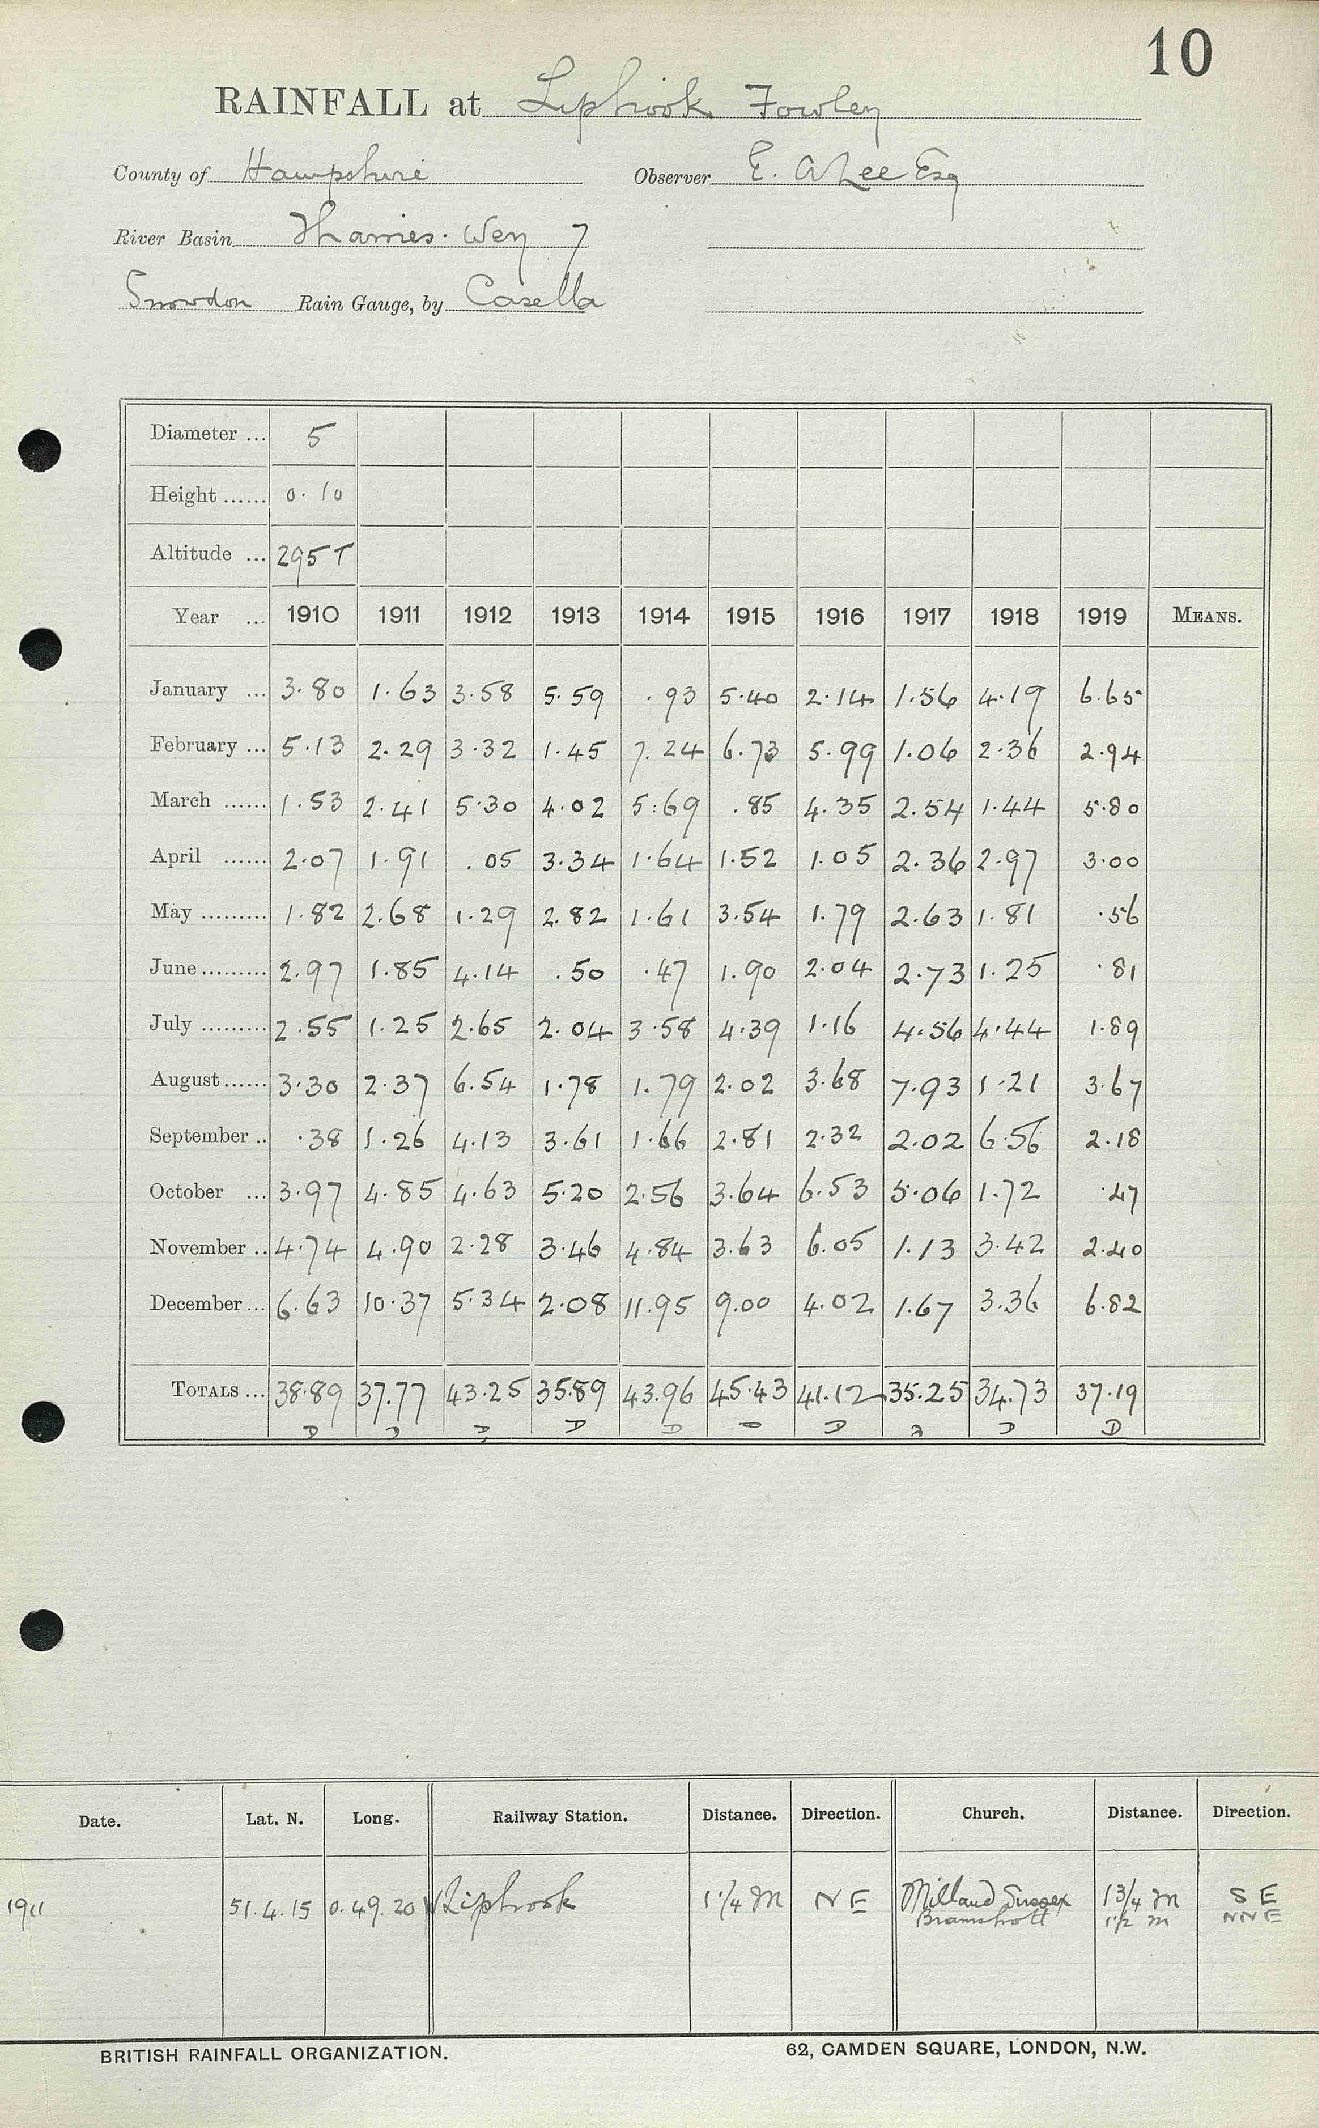 10
RAINFALL at Liphook Fowley
County of Hampshire Observer E. A Lee Esq
River Basin Thames. Wey 7
Snowdon Rain Gauge, by Casella
Diameter ... 5
Height ...... 0.10
Altitude ... 295 T
Year ... 1910 1911 1912 1913 1914 1915 1916 1917 1918 1919 MEANS.
January ... 3.80 1.63 3.58 5.59 .93 5.40 2.14 1.56 4.19 6.65
February ... 5.13 2.29 3.32 1.45 7.24 6.73 5.99 1.06 2.36 2.94
March ...... 1.53 2.41 5.30 4.02 5.69 .85 4.35 2.54 1.44 5.80
April ...... 2.07 1.91 .05 3.34 1.64 1.52 1.05 2.36 2.97 3.00
May ......... 1.82 2.68 1.29 2.82 1.61 3.54 1.79 2.63 1.81 .56
June ......... 2.97 1.85 4.14 .50 .47 1.90 2.04 2.73 1.25 .81
July ......... 2.55 1.25 2.65 2.04 3.58 4.39 1.16 4.56 4.44 1.89
August ...... 3.30 2.37 6.54 1.78 1.79 2.02 3.68 7.93 1.21 3.67
September .. .38 1.26 4.13 3.61 1.66 2.81 2.32 2.02 6.56 2.18
October ... 3.97 4.85 4.63 5.20 2.56 3.64 6.53 5.06 1.72 .47
November .. 4.74 4.90 2.28 3.46 4.84 3.63 6.05 1.13 3.42 2.40
December ... 6.63 10.37 5.34 2.08 11.95 9.00 4.02 1.67 3.36 6.82
TOTALS ... 38.89 37.77 43.25 35.89 43.96 45.43 41.12 35.25 34.73 37.19
D D D D D D D D D D
Date. Lat. N. Long. Railway Station. Distance. Direction. Church. Distance. Direction.
1911 51.4.15 0.49.20 W Liphook 1 1/4 M N E Milland Sussex 1 3/4 M S E
Bramshott 1 1/2 m NNE
BRITISH RAINFALL ORGANIZATION. 62, CAMDEN SQUARE, LONDON, N.W.